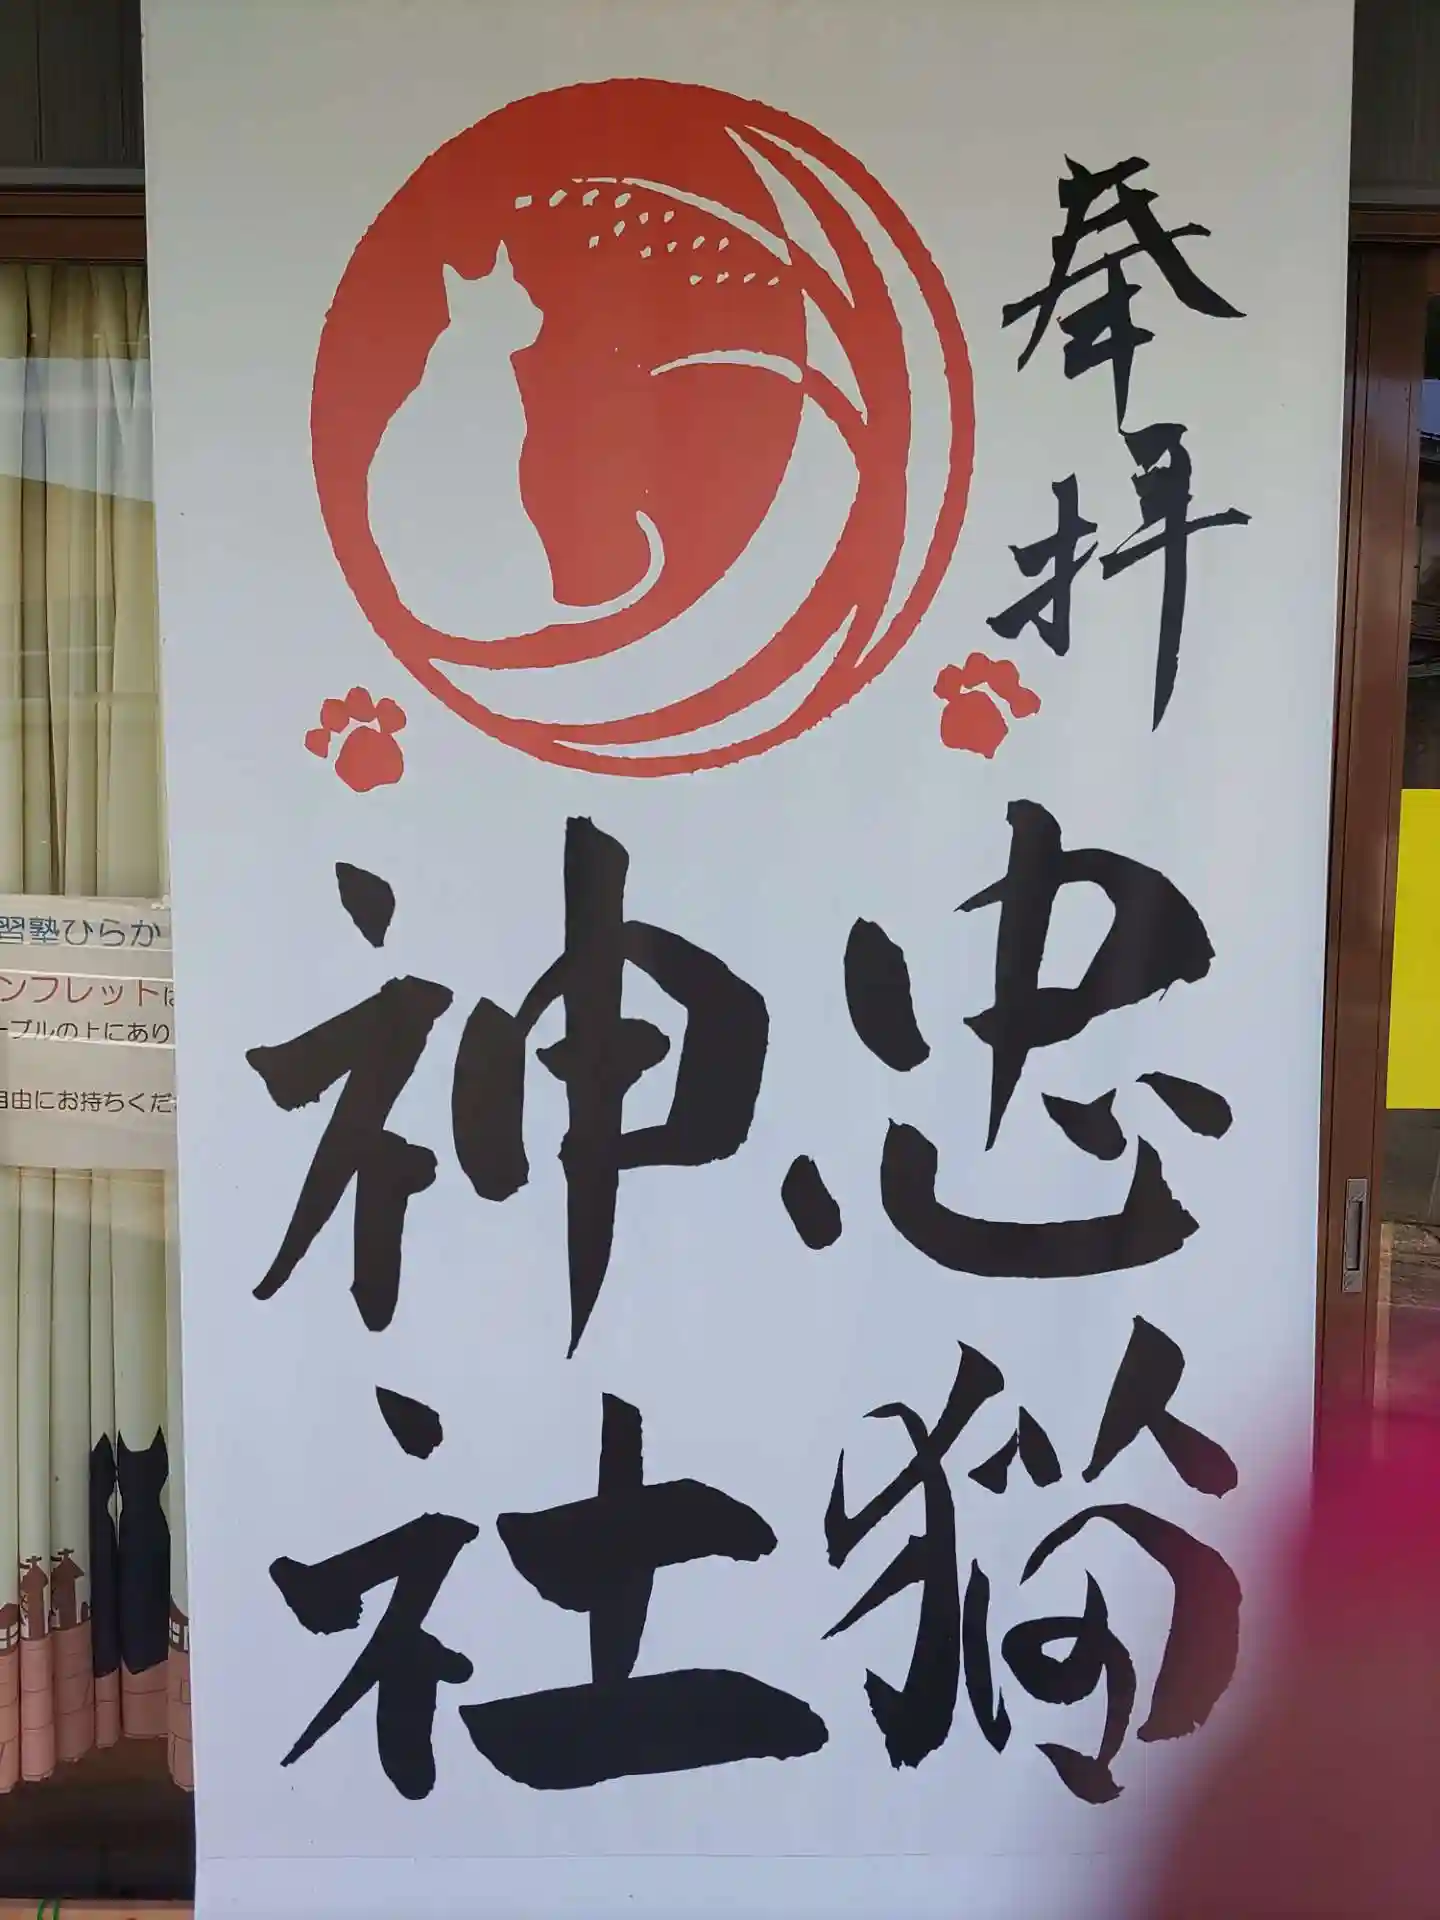 奉拝
忠猫
神社
習塾ひらか
ンフレットは
ーブルの上にあり
自由にお持ちくだ